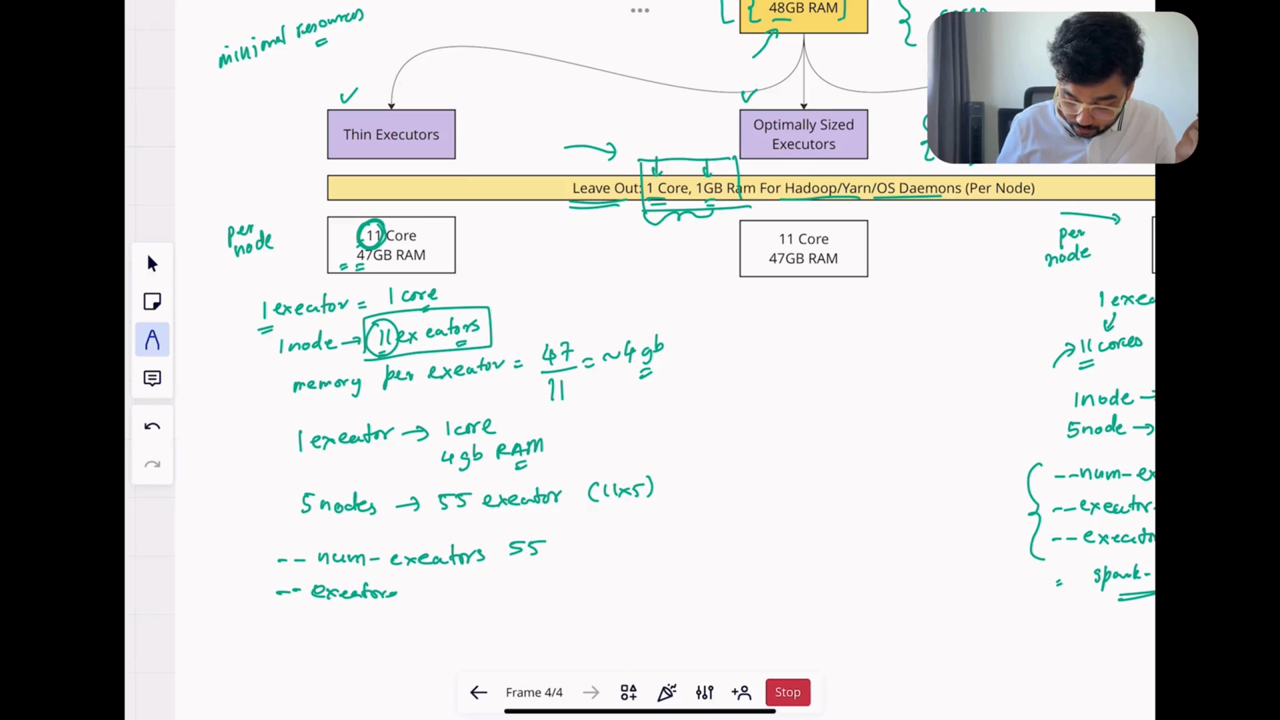 minimal resources
48GB RAM
Thin Executors
Optimally Sized
Executors
Leave Out: 1 Core, 1GB Ram For Hadoop/Yarn/OS Daemons (Per Node)
per
node
11 Core
47GB RAM
11 Core
47GB RAM
per
node
1 exeator = 1 core
1 node → 11 exeators
memory per exeator = 47/11 = ~4gb
1 exeator → 1 core
4gb RAM
5 nodes → 55 exeator (11x5)
-- num-exeators 55
-- exeator
1 exec
11 cores
1node →
5node →
--num-ex
--executor
--executo
= spark-
Frame 4/4
Stop